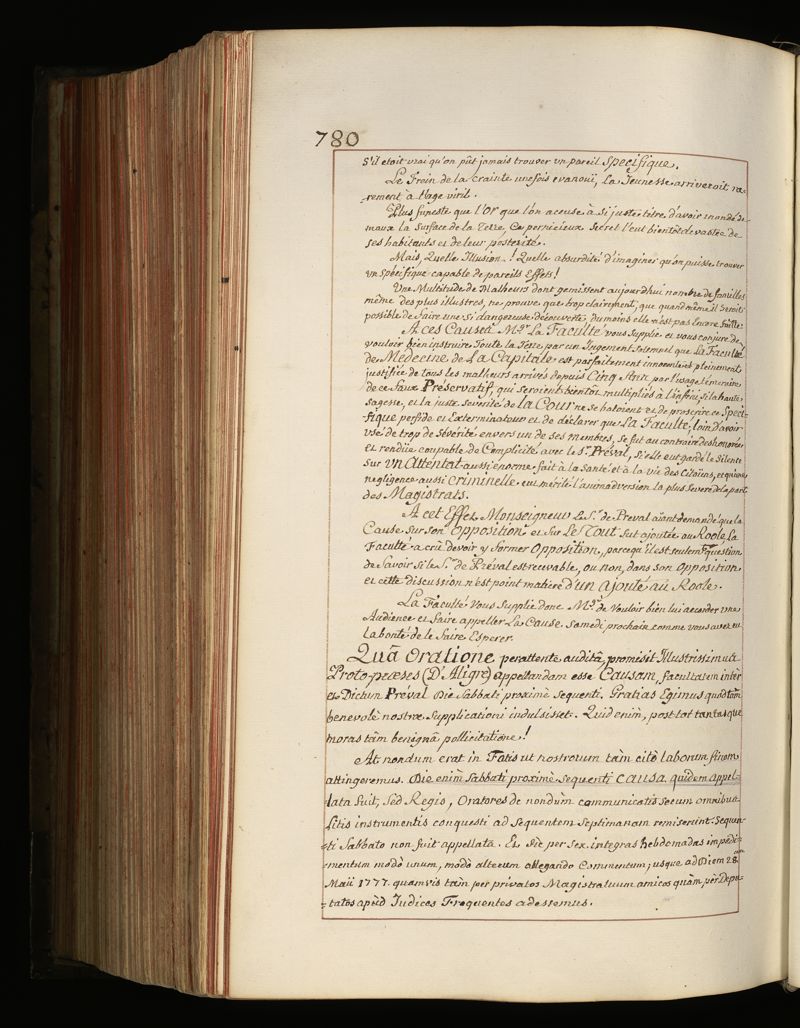 780
S'il etoit vrai qu'on pût jamais trouver un pareil Specifique.
Le Frein de la crainte une fois evanoui, La Jeunesse arriveroit ra-
-rement à l'age viril.
Plus funeste que l'Or que l'on accuse à si juste titre d'avoir inondé de
maux la surface de la Terre, Ce pernicieux Secret l'eut bientôt devastée de
ses habitants et de leur posterité.
Mais, Quelle Illusion! Quelle absurdité d'imaginer qu'on puisse trouver
un Spécifique capable de pareils Effets!
Une Multitude de Malheurs dont gemissent aujourdhui nombre de familles
même des plus illustres, ne prouve que trop clairement, que quand même il seroit
possible de faire une si dangereuse découverte, du moins elle n'est pas Encore faitte.
A ces Causes Mgr. La Faculté vous Supplie et vous conjure de
vouloir bien instruire Toute la Terre par un Jugement Solemnel que La Faculté
de Médecine de La Capitale est parfaitement innocente et pleinement
justifiée de tous les malheurs arrivés depuis Cinq Ans par l'usage témeraire
de ce faux Préservatif, qui seroient bientôt multipliés à l'infini, si la haute
sagesse, et la juste severité de la Cour ne se hatoient et de proscrire ce Speci-
-fique perfide et Exterminateur et de déclarer que La Faculté, loin d'avoir
usé de trop de Sévérité envers un de ses membres, se fut au contraire deshonorée
et rendüe coupable de Complicité avec le Sr. Préval, Si elle eut gardé le Silence
sur un Attentat aussi énorme fait à la Santé et à la vie des Citoïens, et qu'une
negligence aussi Criminelle eut mérité l'animadversion la plus severe de la part
des Magistrats.
A cet Effet, Monseigneur Le Sr. de Preval aïant demandé que la
Cause sur son Opposition et sur Le Tout fut ajoutée au Roole, La
Faculté a crû devoir y former Opposition, parcequ'il est seulemt question
de Savoir si le Sr. de Préval est recevable, ou non, dans son Opposition
et cette discussion n'est point matiere d'un Ajouté au Roole.
La Faculté Vous Supplie donc Mgr. de Vouloir bien lui accorder une
Audience et faire appeller La Cause Samedi prochain comme vous avez eu
La bonté de le faire Esperer.
Quâ Oratione perattente auditâ, promisit Illustrissimus
Proto-præses (D'Aligre) appellandam esse Causam, facultatem intèr
et Dictum Préval Die Sabbati proximè Sequenti. Gratias Egimus quod tàm
benevolè nostræ Supplicationi indulsisset. Quid enim, post tot tantasque
moras tàm benignâ pollicitatione!
At nondum erat in Fatis ut nostrorum tàm citò laborum finem
attingeremus. Die enim Sabbati proximè Sequenti causa quidem appel-
-lata fuit, Sed Regis, Oratores de nondùm communicatis secum omnibus
Litis instrumentis conquesti ad Sequentem Septimanam remiserunt. Sequen-
-ti Sabbato non fuit appellata. Et sic per Sex integras hebdomadas impedi-
-mentum modò unum, modò alterum allegando Commentum, usque ad Diem 28am
Maii 1777. quamvis tàm per privatos Magistratuum amicos quàm, per Depu-
-tatos apùd Judices Frequentes adessemus.